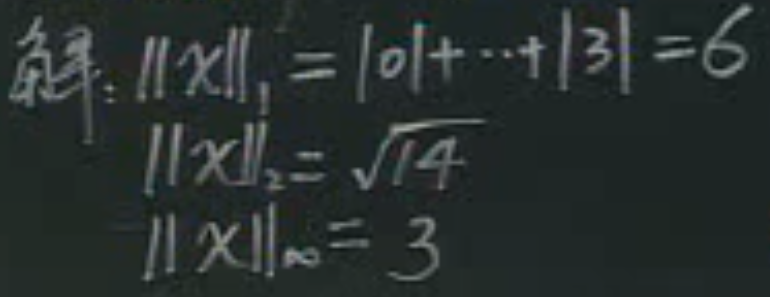 解:||x||₁=|0|+…+|3|=6
||x||₂=√14
||x||∞=3